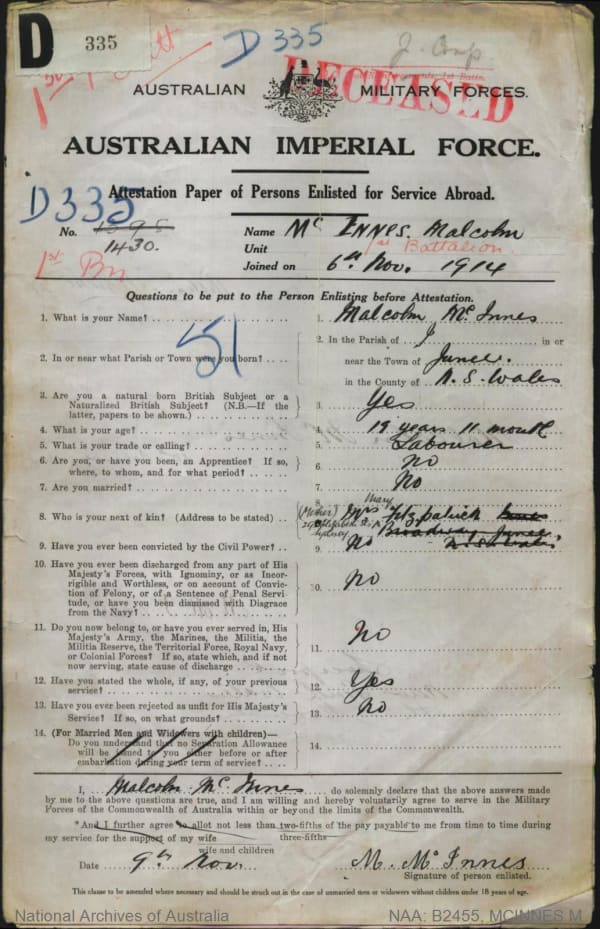 D 335
D 335
J. Comp.
1st Batt
DECEASED
AUSTRALIAN MILITARY FORCES.
AUSTRALIAN IMPERIAL FORCE.
Attestation Paper of Persons Enlisted for Service Abroad.
D335
No. 1395 Name Mc INNES. Malcolm
1430. Unit 1st Battalion.
1st Bn Joined on 6th Nov. 1914
Questions to be put to the Person Enlisting before Attestation.
51
1. What is your Name? 1. Malcolm Mc Innes
2. In or near what Parish or Town were you born? 2. In the Parish of J in or
near the Town of Junee.
in the County of N. S. Wales
3. Are you a natural born British Subject or a
Naturalized British Subject? (N.B.—If the
latter, papers to be shown.) 3. Yes
4. What is your age? 4. 19 years 11 month
5. What is your trade or calling? 5. Labourer
6. Are you, or have you been, an Apprentice? If so,
where, to whom, and for what period? 6. No
7. Are you married? 7. No
8. Who is your next of kin? (Address to be stated) 8. (Mother) Mrs Mary Fitzpatrick
Sydney Broadway Junee.
N.S. Wales
9. Have you ever been convicted by the Civil Power? 9. No
10. Have you ever been discharged from any part of His
Majesty's Forces, with Ignominy, or as Incor-
rigible and Worthless, or on account of Convic-
tion of Felony, or of a Sentence of Penal Servi-
tude, or have you been dismissed with Disgrace
from the Navy? 10. No
11. Do you now belong to, or have you ever served in, His
Majesty's Army, the Marines, the Militia, the
Militia Reserve, the Territorial Force, Royal Navy,
or Colonial Forces? If so, state which, and if not
now serving, state cause of discharge 11. No
12. Have you stated the whole, if any, of your previous
service? 12. Yes
13. Have you ever been rejected as unfit for His Majesty's
Service? If so, on what grounds? 13. No
14. (For Married Men and Widowers with children)—
Do you understand that no Separation Allowance
will be issued to you either before or after
embarkation during your term of service? 14.
I, Malcolm Mc Innes do solemnly declare that the above answers made
by me to the above questions are true, and I am willing and hereby voluntarily agree to serve in the Military
Forces of the Commonwealth of Australia within or beyond the limits of the Commonwealth.
*And I further agree to allot not less than two-fifths of the pay payable to me from time to time during
three-fifths
my service for the support of my wife
wife and children
Date 9th Nov. M. Mc Innes
Signature of person enlisted.
This clause to be amended where necessary and should be struck out in the case of unmarried men or widowers without children under 18 years of age.
National Archives of Australia NAA: B2455, MCINNES M